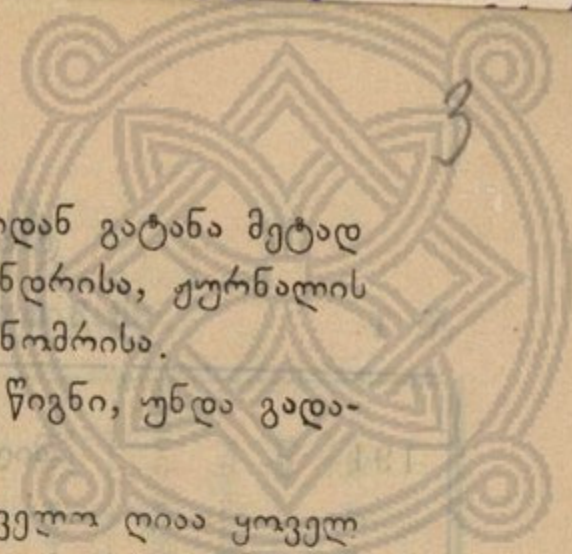 3
იდან გატანა მეტად
ნდრისა, ჟურნალის
ნომრისა.
წიგნი, უნდა გადა-
ველო ღიაა ყოველ